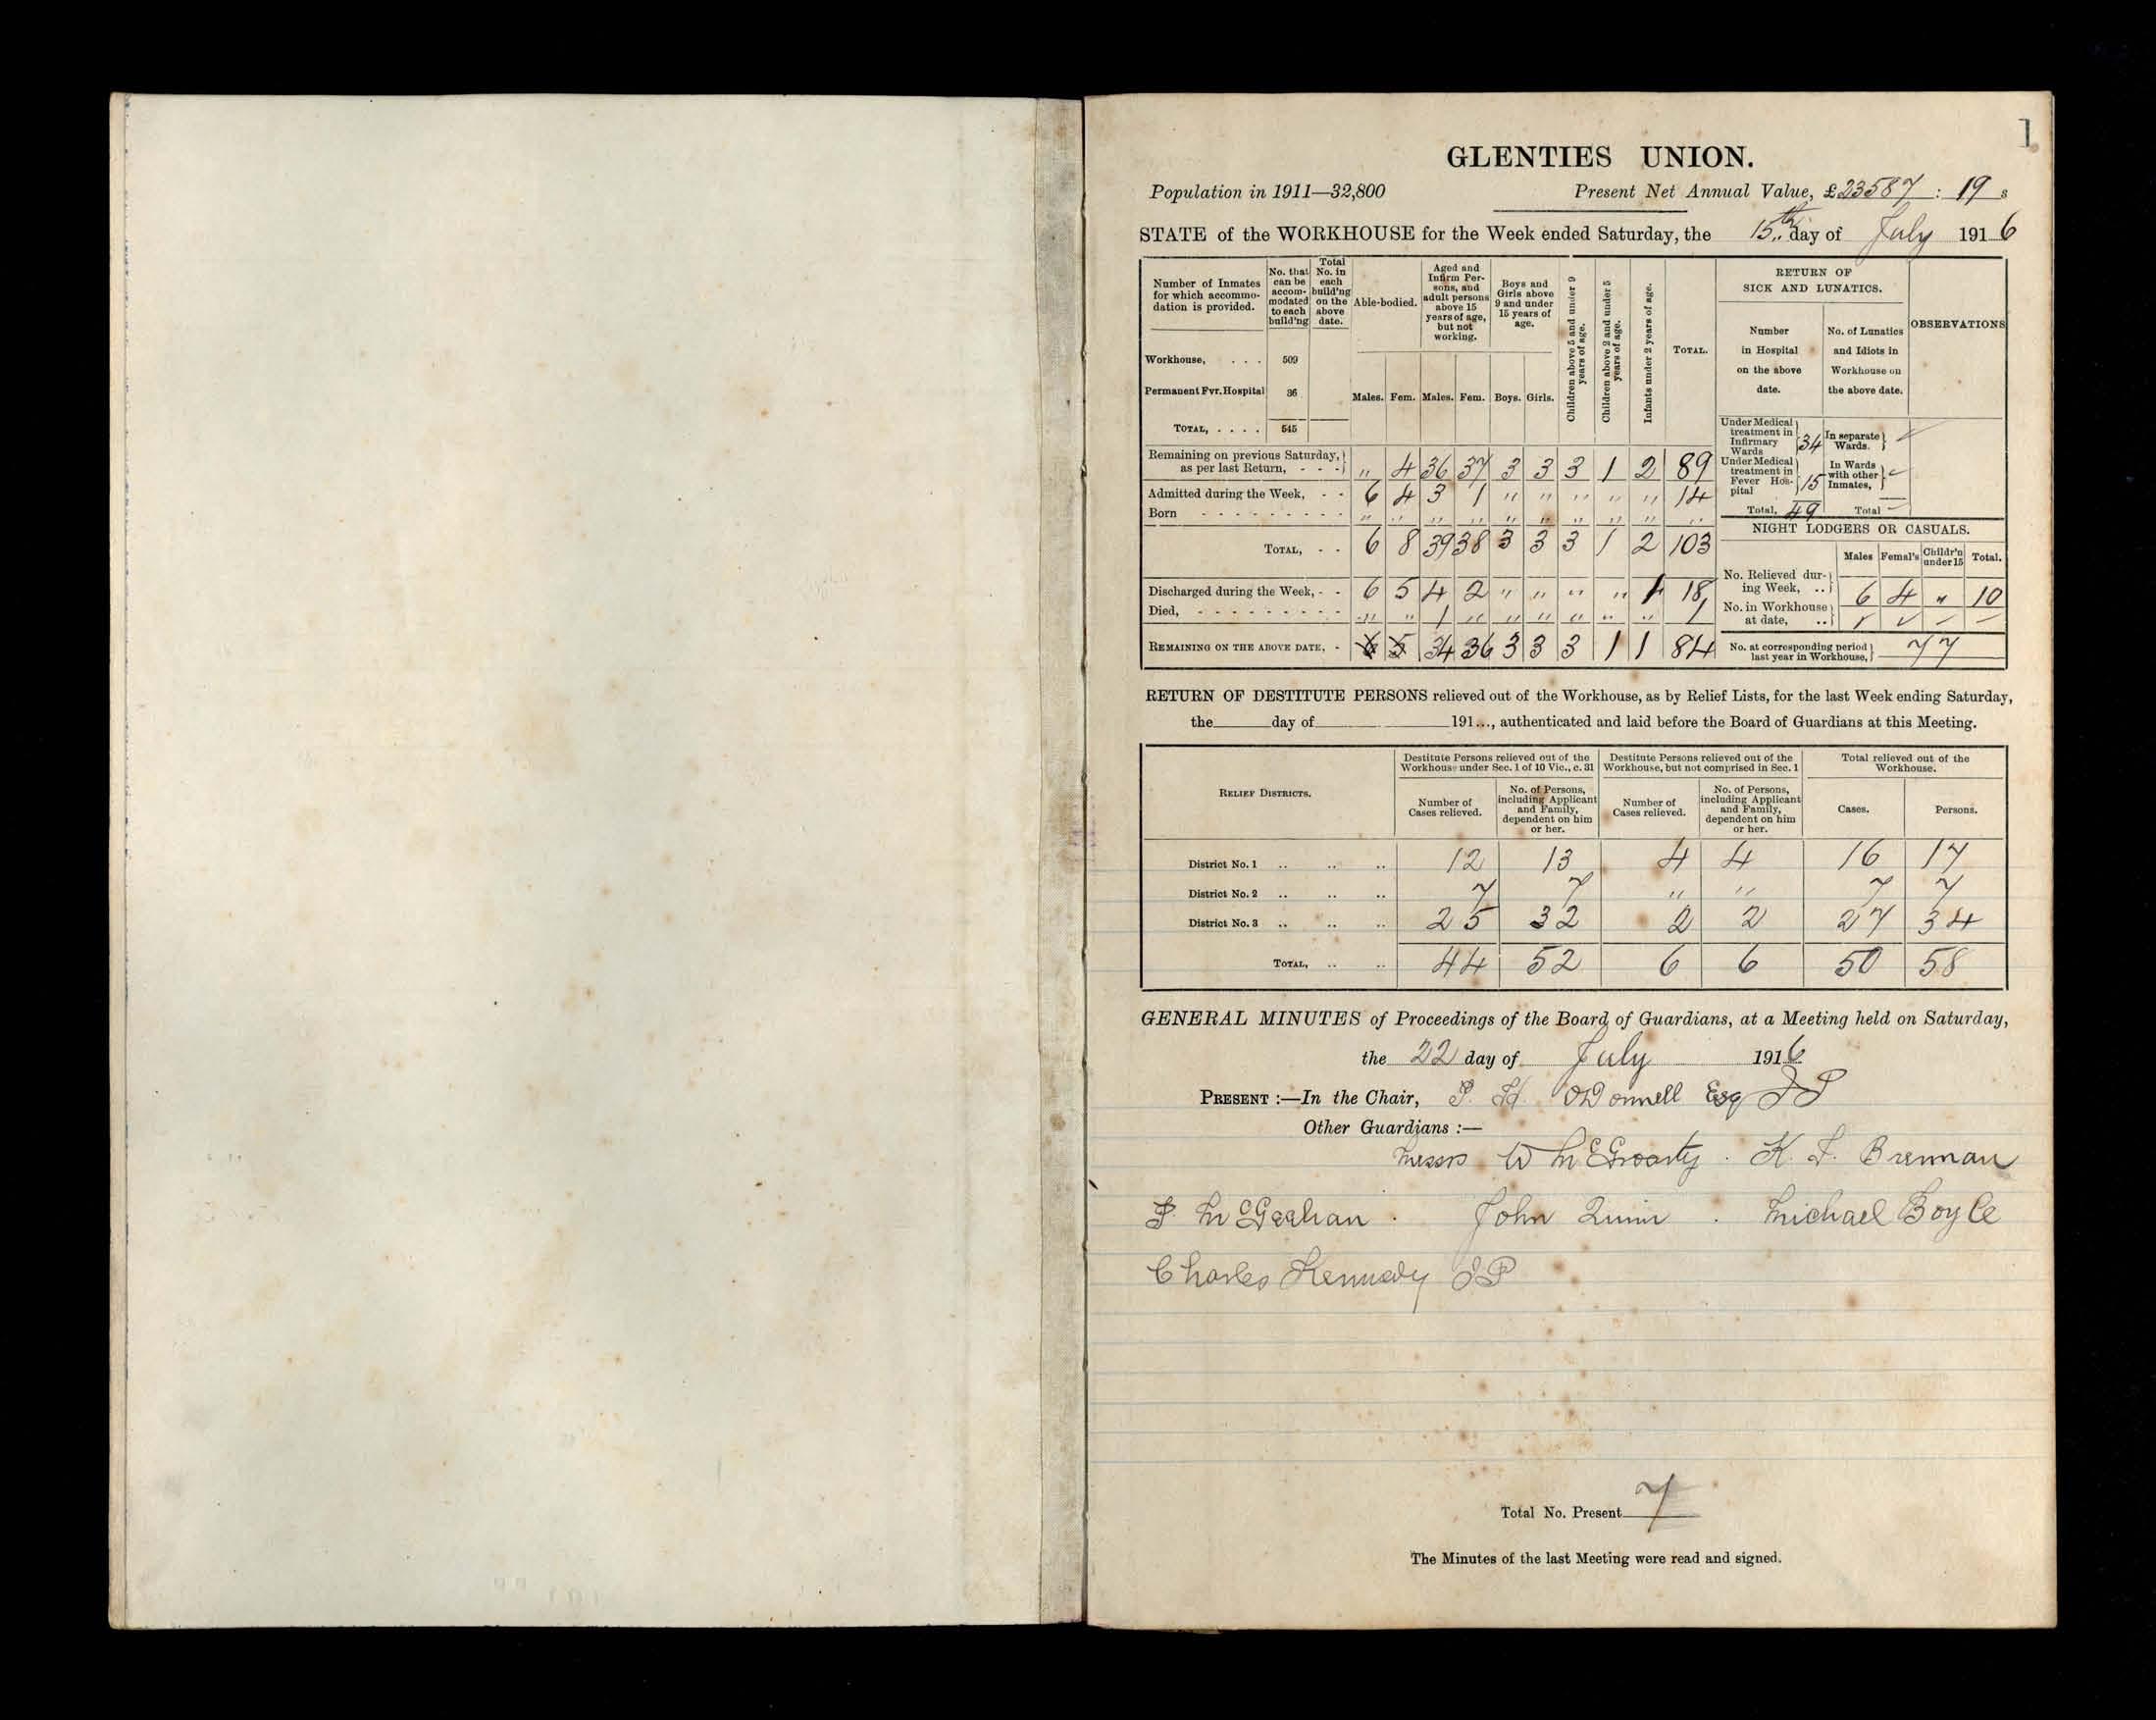 1
GLENTIES UNION.
Population in 1911—32,800 Present Net Annual Value, £23587 : 19 s
STATE of the WORKHOUSE for the Week ended Saturday, the 15th day of July 1916
Number of Inmates for which accommodation is provided. No. that can be accommodated to each build'ng Total No. in each build'ng on the above date. Able-bodied. Aged and Infirm Persons, and adult persons above 15 years of age, but not working. Boys and Girls above 9 and under 15 years of age. Children above 5 and under 9 years of age. Children above 2 and under 5 years of age. Infants under 2 years of age. TOTAL.
Males. Fem. Males. Fem. Boys. Girls.
Workhouse, . . . 509
Permanent Fvr. Hospital 36
TOTAL, . . . . 545
Remaining on previous Saturday, as per last Return, - - - " 4 36 37 3 3 3 1 2 89
Admitted during the Week, - - 6 4 3 1 " " " " " 14
Born - - - - - - - - - " " " " " " " " " "
TOTAL, - - 6 8 39 38 3 3 3 1 2 103
Discharged during the Week, - - 6 5 4 2 " " " " 1 18
Died, - - - - - - - - - " " 1 " " " " " " 1
REMAINING ON THE ABOVE DATE, - 34 36 3 3 3 1 1 84
RETURN OF SICK AND LUNATICS.
OBSERVATIONS
Number in Hospital on the above date.
No. of Lunatics and Idiots in Workhouse on the above date.
Under Medical treatment in Infirmary Wards 34 In separate Wards.
Under Medical treatment in Fever Hospital 15 In Wards with other Inmates,
Total, 49 Total
NIGHT LODGERS OR CASUALS.
Males Femal's Childr'n under 15 Total.
No. Relieved during Week, .. 6 4 " 10
No. in Workhouse at date, ..
No. at corresponding period last year in Workhouse, 77
RETURN OF DESTITUTE PERSONS relieved out of the Workhouse, as by Relief Lists, for the last Week ending Saturday,
the day of 191..., authenticated and laid before the Board of Guardians at this Meeting.
RELIEF DISTRICTS.
Destitute Persons relieved out of the Workhouse under Sec. 1 of 10 Vic., c. 31
Destitute Persons relieved out of the Workhouse, but not comprised in Sec. 1
Total relieved out of the Workhouse.
Number of Cases relieved. No. of Persons, including Applicant and Family, dependent on him or her. Number of Cases relieved. No. of Persons, including Applicant and Family, dependent on him or her. Cases. Persons.
District No. 1 .. .. .. 12 13 4 4 16 17
District No. 2 .. .. .. 7 7 " " 7 7
District No. 3 .. .. .. 25 32 2 2 27 34
TOTAL, .. .. 44 52 6 6 50 58
GENERAL MINUTES of Proceedings of the Board of Guardians, at a Meeting held on Saturday,
the 22 day of July 1916
PRESENT :—In the Chair, P. H. O'Donnell Esq JP
Other Guardians :—
Messrs W McGroarty . K. F. Brennan
P. McGeehan . John Quinn . Michael Boyle
Charles Kennedy JP
Total No. Present 7
The Minutes of the last Meeting were read and signed.